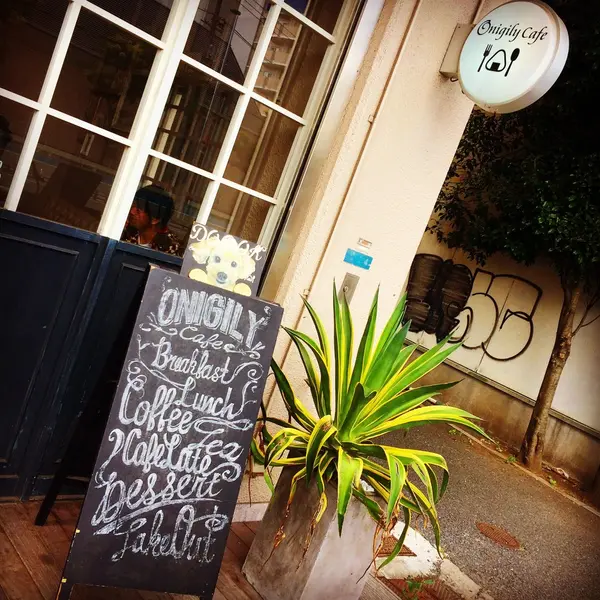 Onigily Cafe
ONIGILY
Cafe
Breakfast
Lunch
Coffee Tea
Cafe Latte
Dessert
Take Out